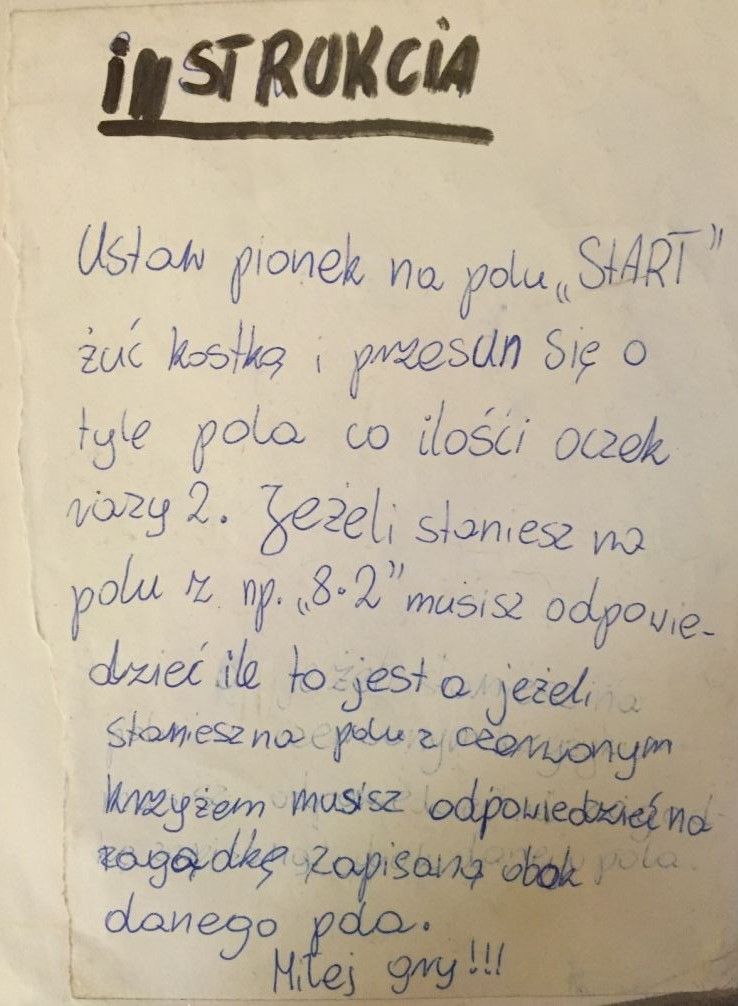 INSTRUKCIA
Ustaw pionek na polu „StART"
żuć kostką i przesuń się o
tyle pola co ilośći oczek
razy 2. Jeżeli staniesz na
polu z np. „8·2" musisz odpowie-
dzieć ile to jest a jeżeli
staniesz na polu z czerwonym
krzyżem musisz odpowiedzieć na
zagadkę zapisaną obok
danego pola.
Miłej gry!!!